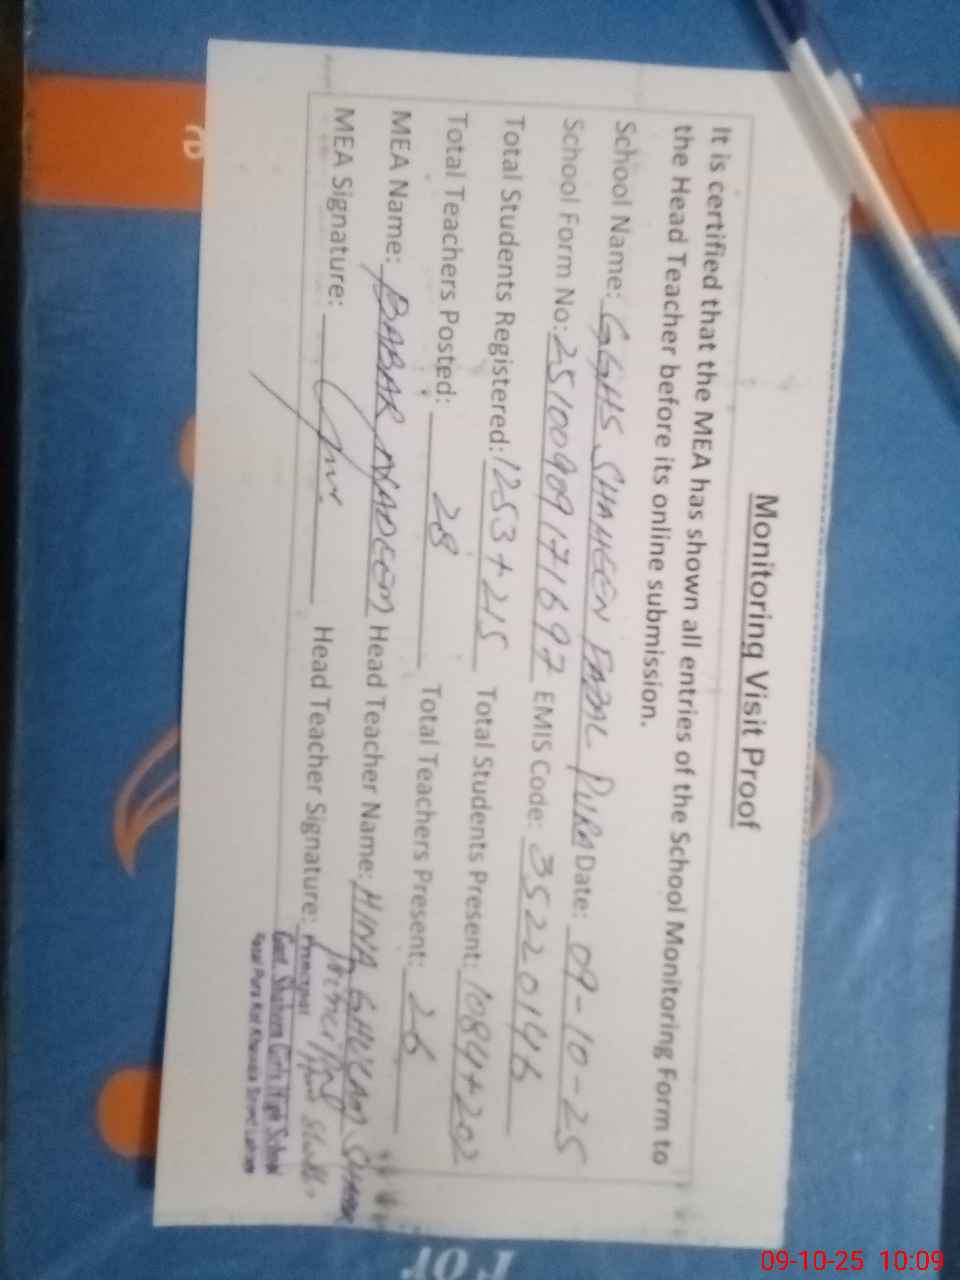 Monitoring Visit Proof
It is certified that the MEA has shown all entries of the School Monitoring Form to
the Head Teacher before its online submission.
School Name: GGHS SHAHEEN FAZAL PURA Date: 09-10-25
School Form No: 2510090917 1697 EMIS Code: 35220146
Total Students Registered: 1253+215 Total Students Present: 1084+202
Total Teachers Posted: 28 Total Teachers Present: 26
MEA Name: BABAR NADEEM Head Teacher Name: HINA
MEA Signature: Head Teacher Signature:
Principal
Govt. Shaheen Girls High School
Fazal Pura Kot Khawaja Saeed Lahore
For
09-10-25 10:09